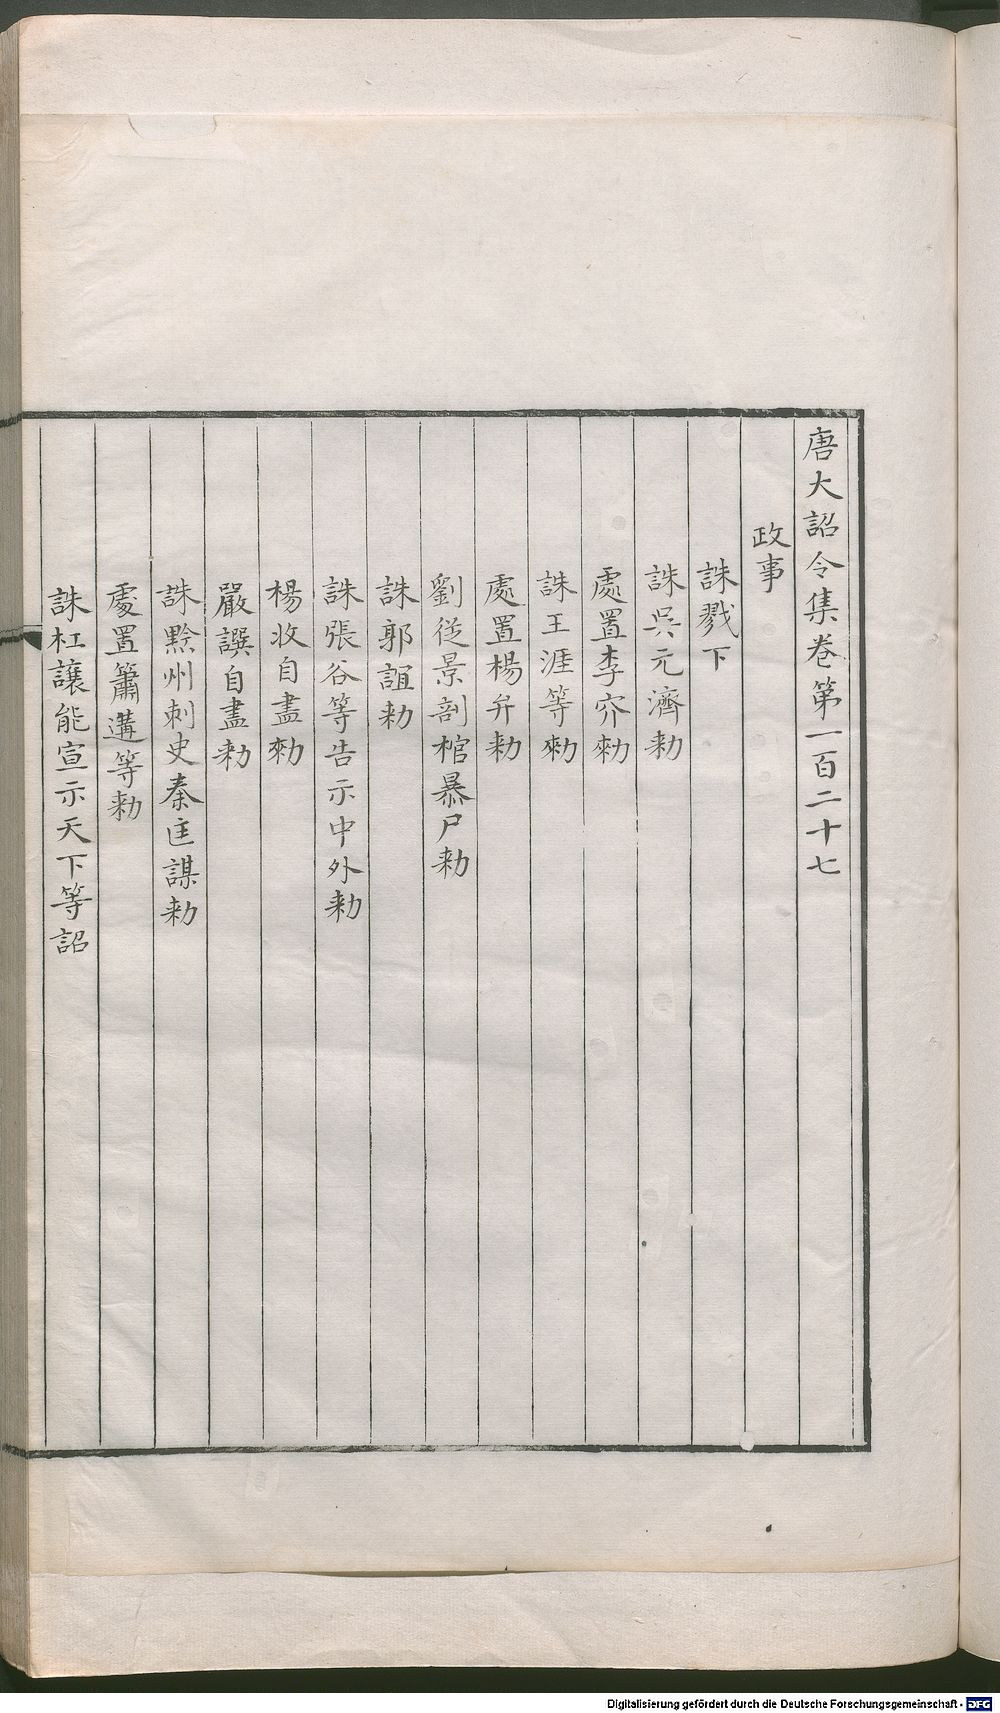 唐大詔令集卷第一百二十七
政事
誅戮下
誅吳元濟勅
處置李夰勑
誅王涯等勑
處置楊弁勅
劉從景剖棺暴尸勅
誅郭誼勅
誅張谷等告示中外勅
楊收自盡勑
嚴譔自盡勅
誅黔州刺史秦匡謀勅
處置簫遘等勅
誅杜讓能宣示天下等詔
Digitalisierung gefördert durch die Deutsche Forschungsgemeinschaft - DFG